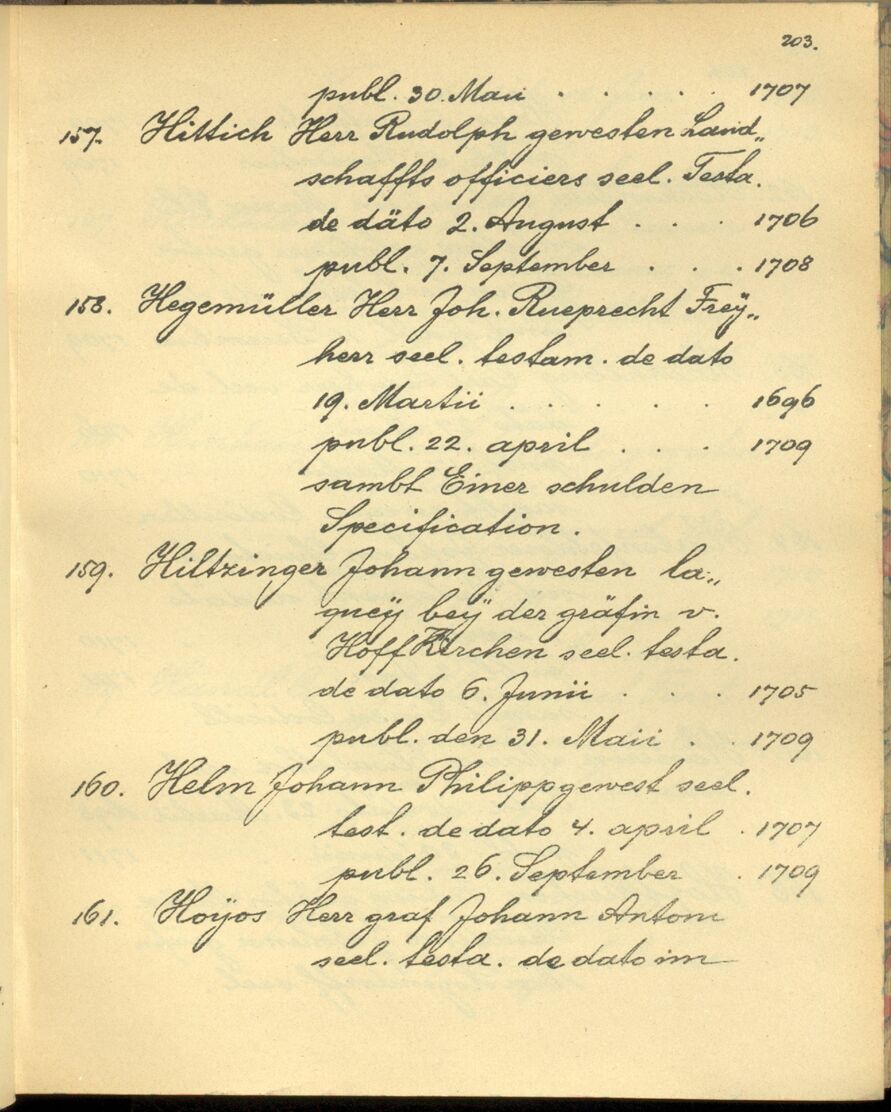 203.
publ. 30. Maii . . . . . 1707
157. Hittich Herr Rudolph gewesten Land„
schaffts officiers seel. Testa.
de däto 2. August . . . 1706
publ. 7. September . . . 1708
158. Hegemüller Herr Joh. Rueprecht Freÿ„
herr seel. testam. de dato
19. Martii . . . . . 1696
publ. 22. april . . . 1709
sambt Einer schulden
Specification.
159. Hiltzinger Johann gewesten la„
queÿ beÿ der gräfin v.
HoffKirchen seel. testa.
de dato 6. Junii . . . 1705
publ. den 31. Maii . . 1709
160. Helm Johann Philipp gewest seel.
test. de dato 4. april . 1707
publ. 26. September . 1709
161. Hoÿos Herr graf Johann Antoni
seel. testa. de dato im